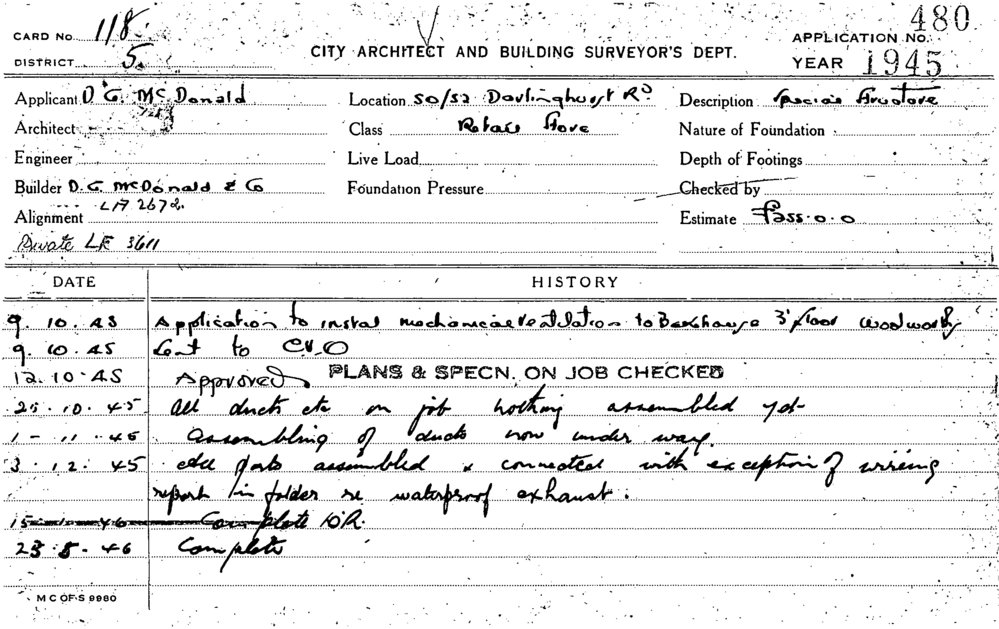 CARD No. 118.
480
APPLICATION No.
DISTRICT 5.
CITY ARCHITECT AND BUILDING SURVEYOR'S DEPT.
YEAR 1945
Applicant D. G. McDonald
Location 50/52 Darlinghurst Rd
Description Special Structure
Architect
Class Retail Store
Nature of Foundation
Engineer
Live Load
Depth of Footings
Builder D. G. McDonald & Co
Foundation Pressure
Checked by
LA 2672.
Alignment
Estimate £255.0.0
Private LF 3611
DATE HISTORY
9. 10. 45 Application to instal mechanical ventilation to 3rd floor Woolworths
9. 10. 45 Sent to C.V.O
12. 10. 45 Approved PLANS & SPECN. ON JOB CHECKED
25. 10. 45 All ducts etc on job nothing assembled yet
1 - 11. 45 Assembling of ducts now under way.
3. 12. 45 All parts assembled & connected with exception of wiring
report in folder re waterproof exhaust.
46 Complete
23. 8. 46 Complete
M C OF S 9980